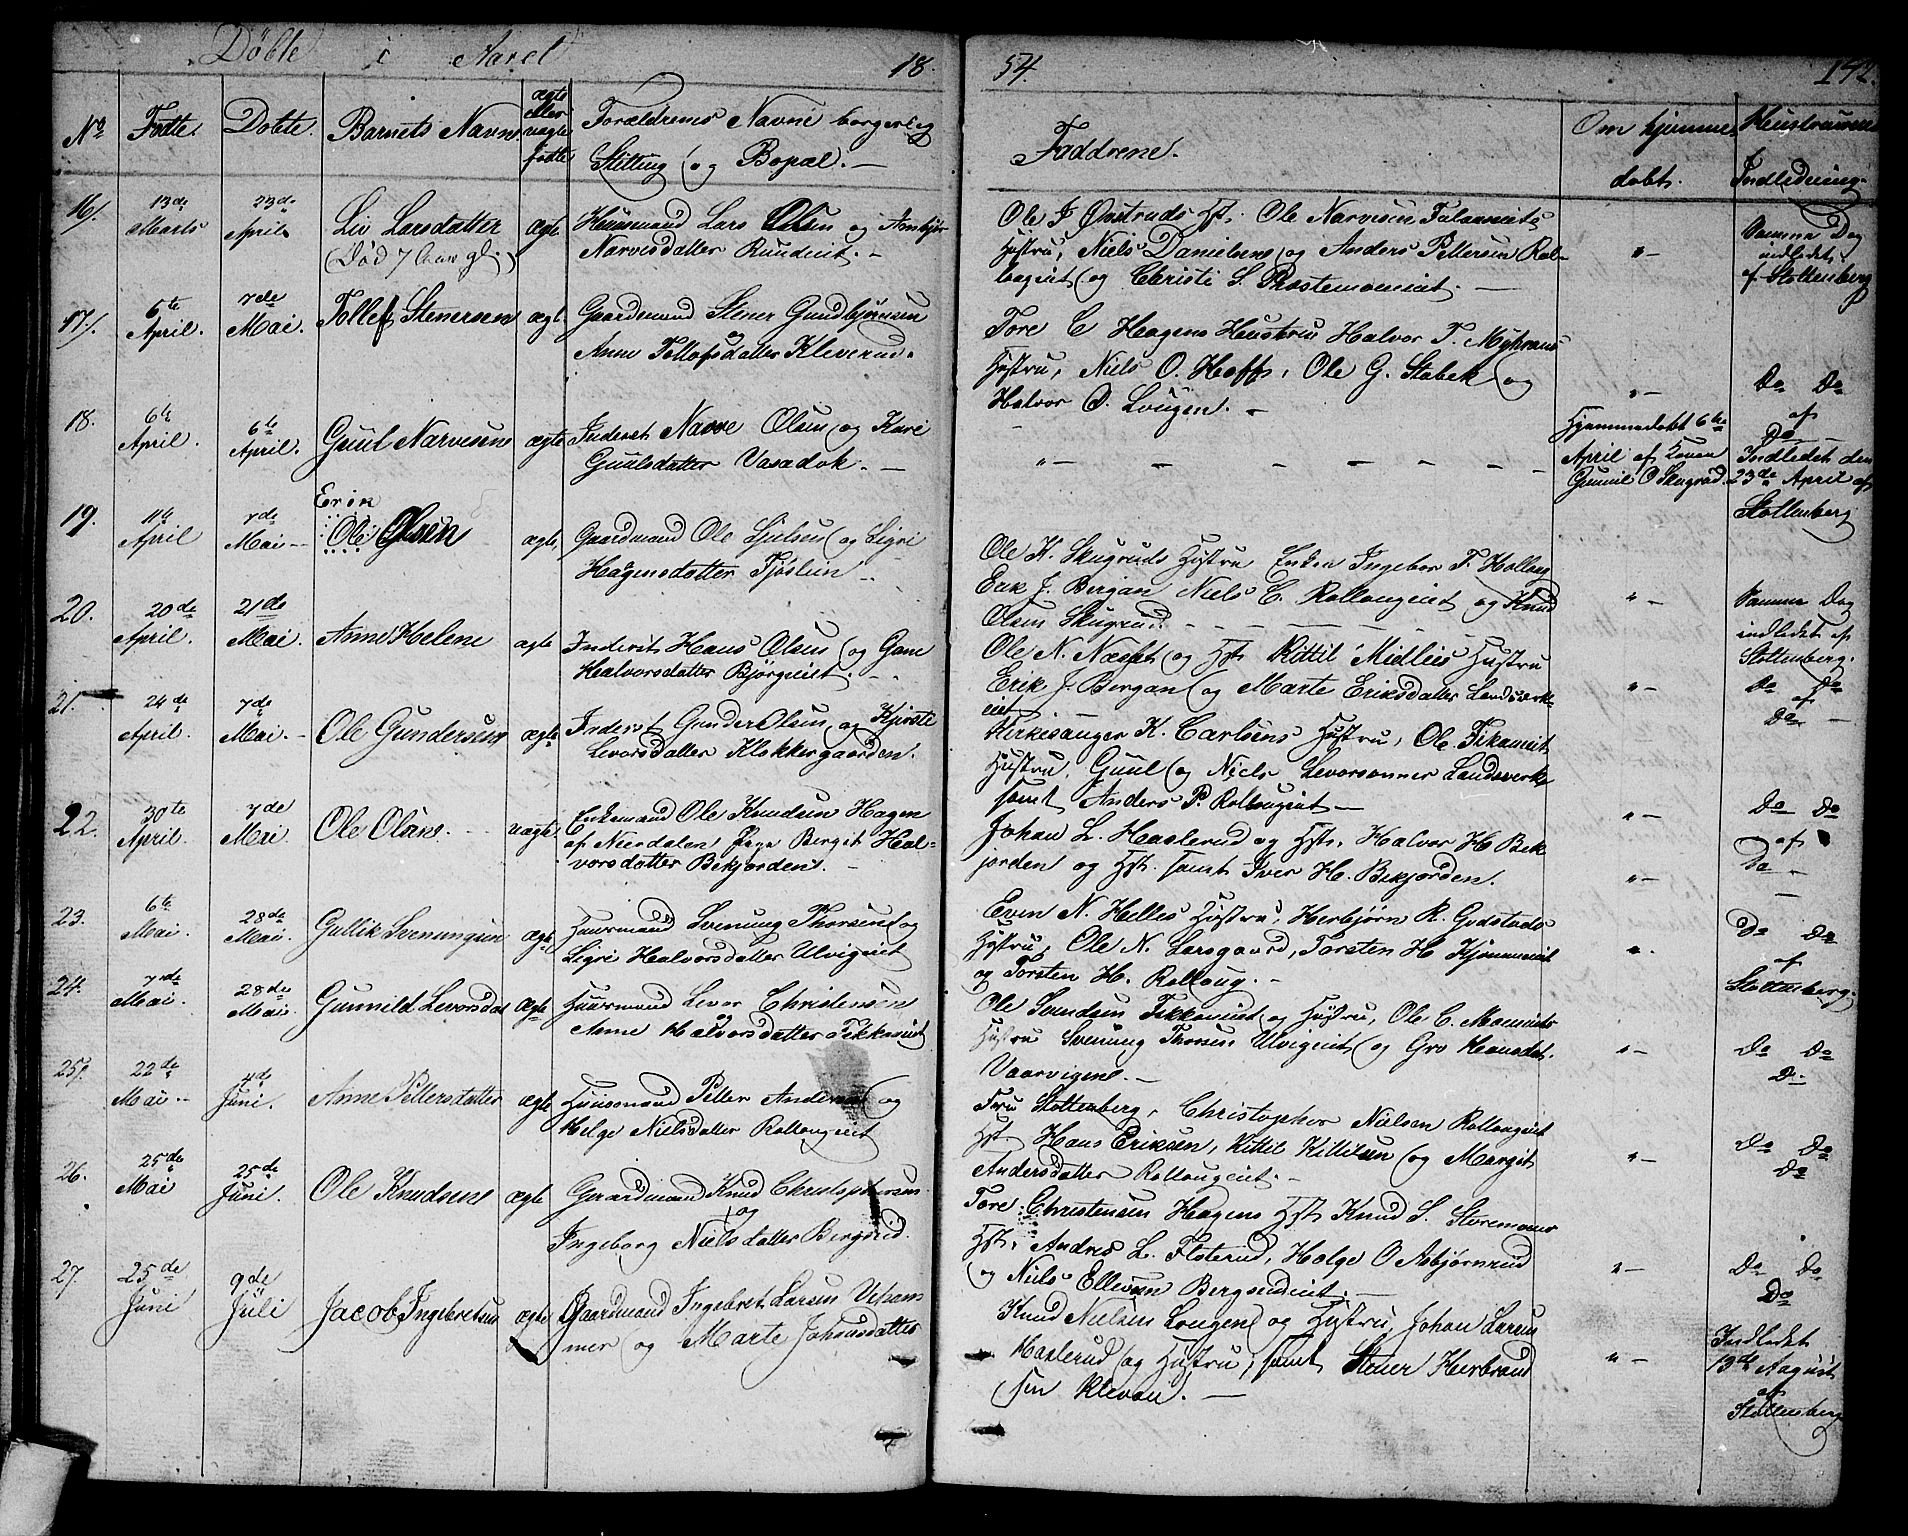 Döbte i Aaret 18
54. 142.
No Födte. Döbte. Barnets Navn ægte eller uægte födte Forældrenes Navne borgerlig
Stilling og Bopæl. —
Faddrene.
Om hjemme
döbt.
Indledning.
16/ 13de Marts 23de April Liv Larsdatter ægte Huusmand Lars Olsen og
(Död 7 Aar gl.) Narvesdatter Rundeiet. —
Ole Narvesen
Hustru, Niels Danielsen og Anders Pettersen Rol-
lougeiet og Christi S. Prestemoeiet. —
" —
Samme Dag
indledet
af Stoltenberg
17/. 6te April. 7de Mai. Tollef Stenersen ægt. Gaardmand Stener Gundbjörnsen
og
Anne Tollefsdatter Kleverud.
Tore C Hagens Huustru Halvor T. Myhrans
Hustru, Niels O. Hoff, Ole G. Stabek og
Halvor O. Lougen. —
" —
Do Do
af
Do
18. 6te April. 6te April. Guul Narvesen ægte Inderst Narve Olsen og Kari
Guulsdatter Vasadok. —
" — — — — — — — —
Hjemmedöbt 6te
April af Konen
Gunnil O Skugrud.
Indledet den
23de April af
Stoltenberg
19. 11te April 7de Mai — Erik
Ole Olsen ægte, Gaardmand Ole Sjulsen og Sigri
Hagensdatter Tjöslien
Ole K. Skugruds Hustru Enken Ingebor T. Hollong
Erik J. Bergan, Niels C. Rollougeiet og Knud
Olsen Skugrud
" —
Samme Dag
indledet af
Stoltenberg.
20. 20de April. 21de Mai. Anne Helene ægte Inderst Hans Olsen og Gone
Halvorsdatter Björgeiet.
Ole N. Næsset og Hst. Kittil Midliis Hustru
Erik J. Bergan og Marte Eriksdatter Landsverk-
eiet
" —
Do Do
af
Do —
21. 24de April. 7de Mai. — Ole Gundersen ægte Inderst Gunder Olsen og Kjersti
Levorsdatter Klokkergaarden.
Kirkesanger K. Carlsens Hustru, Ole Tekaneiet
Hustru, Guul og Niels Levorsönner Landsverk
samt Anders P. Rollougeiet —
" —
Do Do
af
Do
22. 30te April. 7de Mai. Ole Olsens. uægte. Enkemand Ole Knudsen Hagen
af Numdalen Pige Bergit Hal-
vorsdatter Bekjorden. —
Johan L. Haslerud og Hst. Halvor H. Bek
jorden og Hst. samt Iver H. Bekjorden.
" —
23. 6te Mai. 28de Mai. Gullik Svenungsen ægte Huusmand Svenung Thorsen og
Sigri Halvorsdatter Ulvigeiet
Even N. Helles Hustru, Herbjörn K. Gvdstads
Hustru, Ole N. Larsgaard, Torsten H Kjemmeiet
og Torsten H. Rolloug. —
Do Do
af
Stoltenberg.
24. 7de Mai. 28de Mai. Gunnild Levorsdat ægte Huusmand Levor Christensen
og
Anne Halvorsdatter Tekkaeiet
Ole Svendsen Tekkaeiet og Hustru, Ole C. Moeneiets
Hustru Svenung Thorsen Ulvigeiet og Gro Hansdat.
Vaarvigen. —
" —
Do Do
Do.
25/. 22de Mai. — 4de Juni. Anne Pettersdatter ægte Huusmand Petter Andersen og
Helge Nielsdatter Rollougeiet
Fru Stoltenberg, Christopher Nielsen Rollougeiet
Hst Hans Eriksen, Kittil Kittilsen og Margit
Andersdatter Rollougeiet. —
" —
Do Do
Do
26. 25de Mai 25de Juni. Ole Knudsen ægte Gaardmand Knud Christophersen
og
Ingeborg Nielsdatter Bergerud.
Tore Christensen Hagens Hst. Knud S. Storemoens
Hst. Andres L. Floterud, Helge O Asbjörnrud
og Niels Ellevsen Bergerudeiet. —
" —
Do Do
Do
27. 25de Juni 9de Juli Jacob Ingebretsen ægte Gaardmand Ingebret Larsen
mer og Marte Johnsdatter
Knud Nielsen Lougen og Hustru, Johan Larsen
Haslerud og Hustru, samt Stener Herbrand
sen Klevan. —
" —
Indledet
13de August
af
Stoltenberg